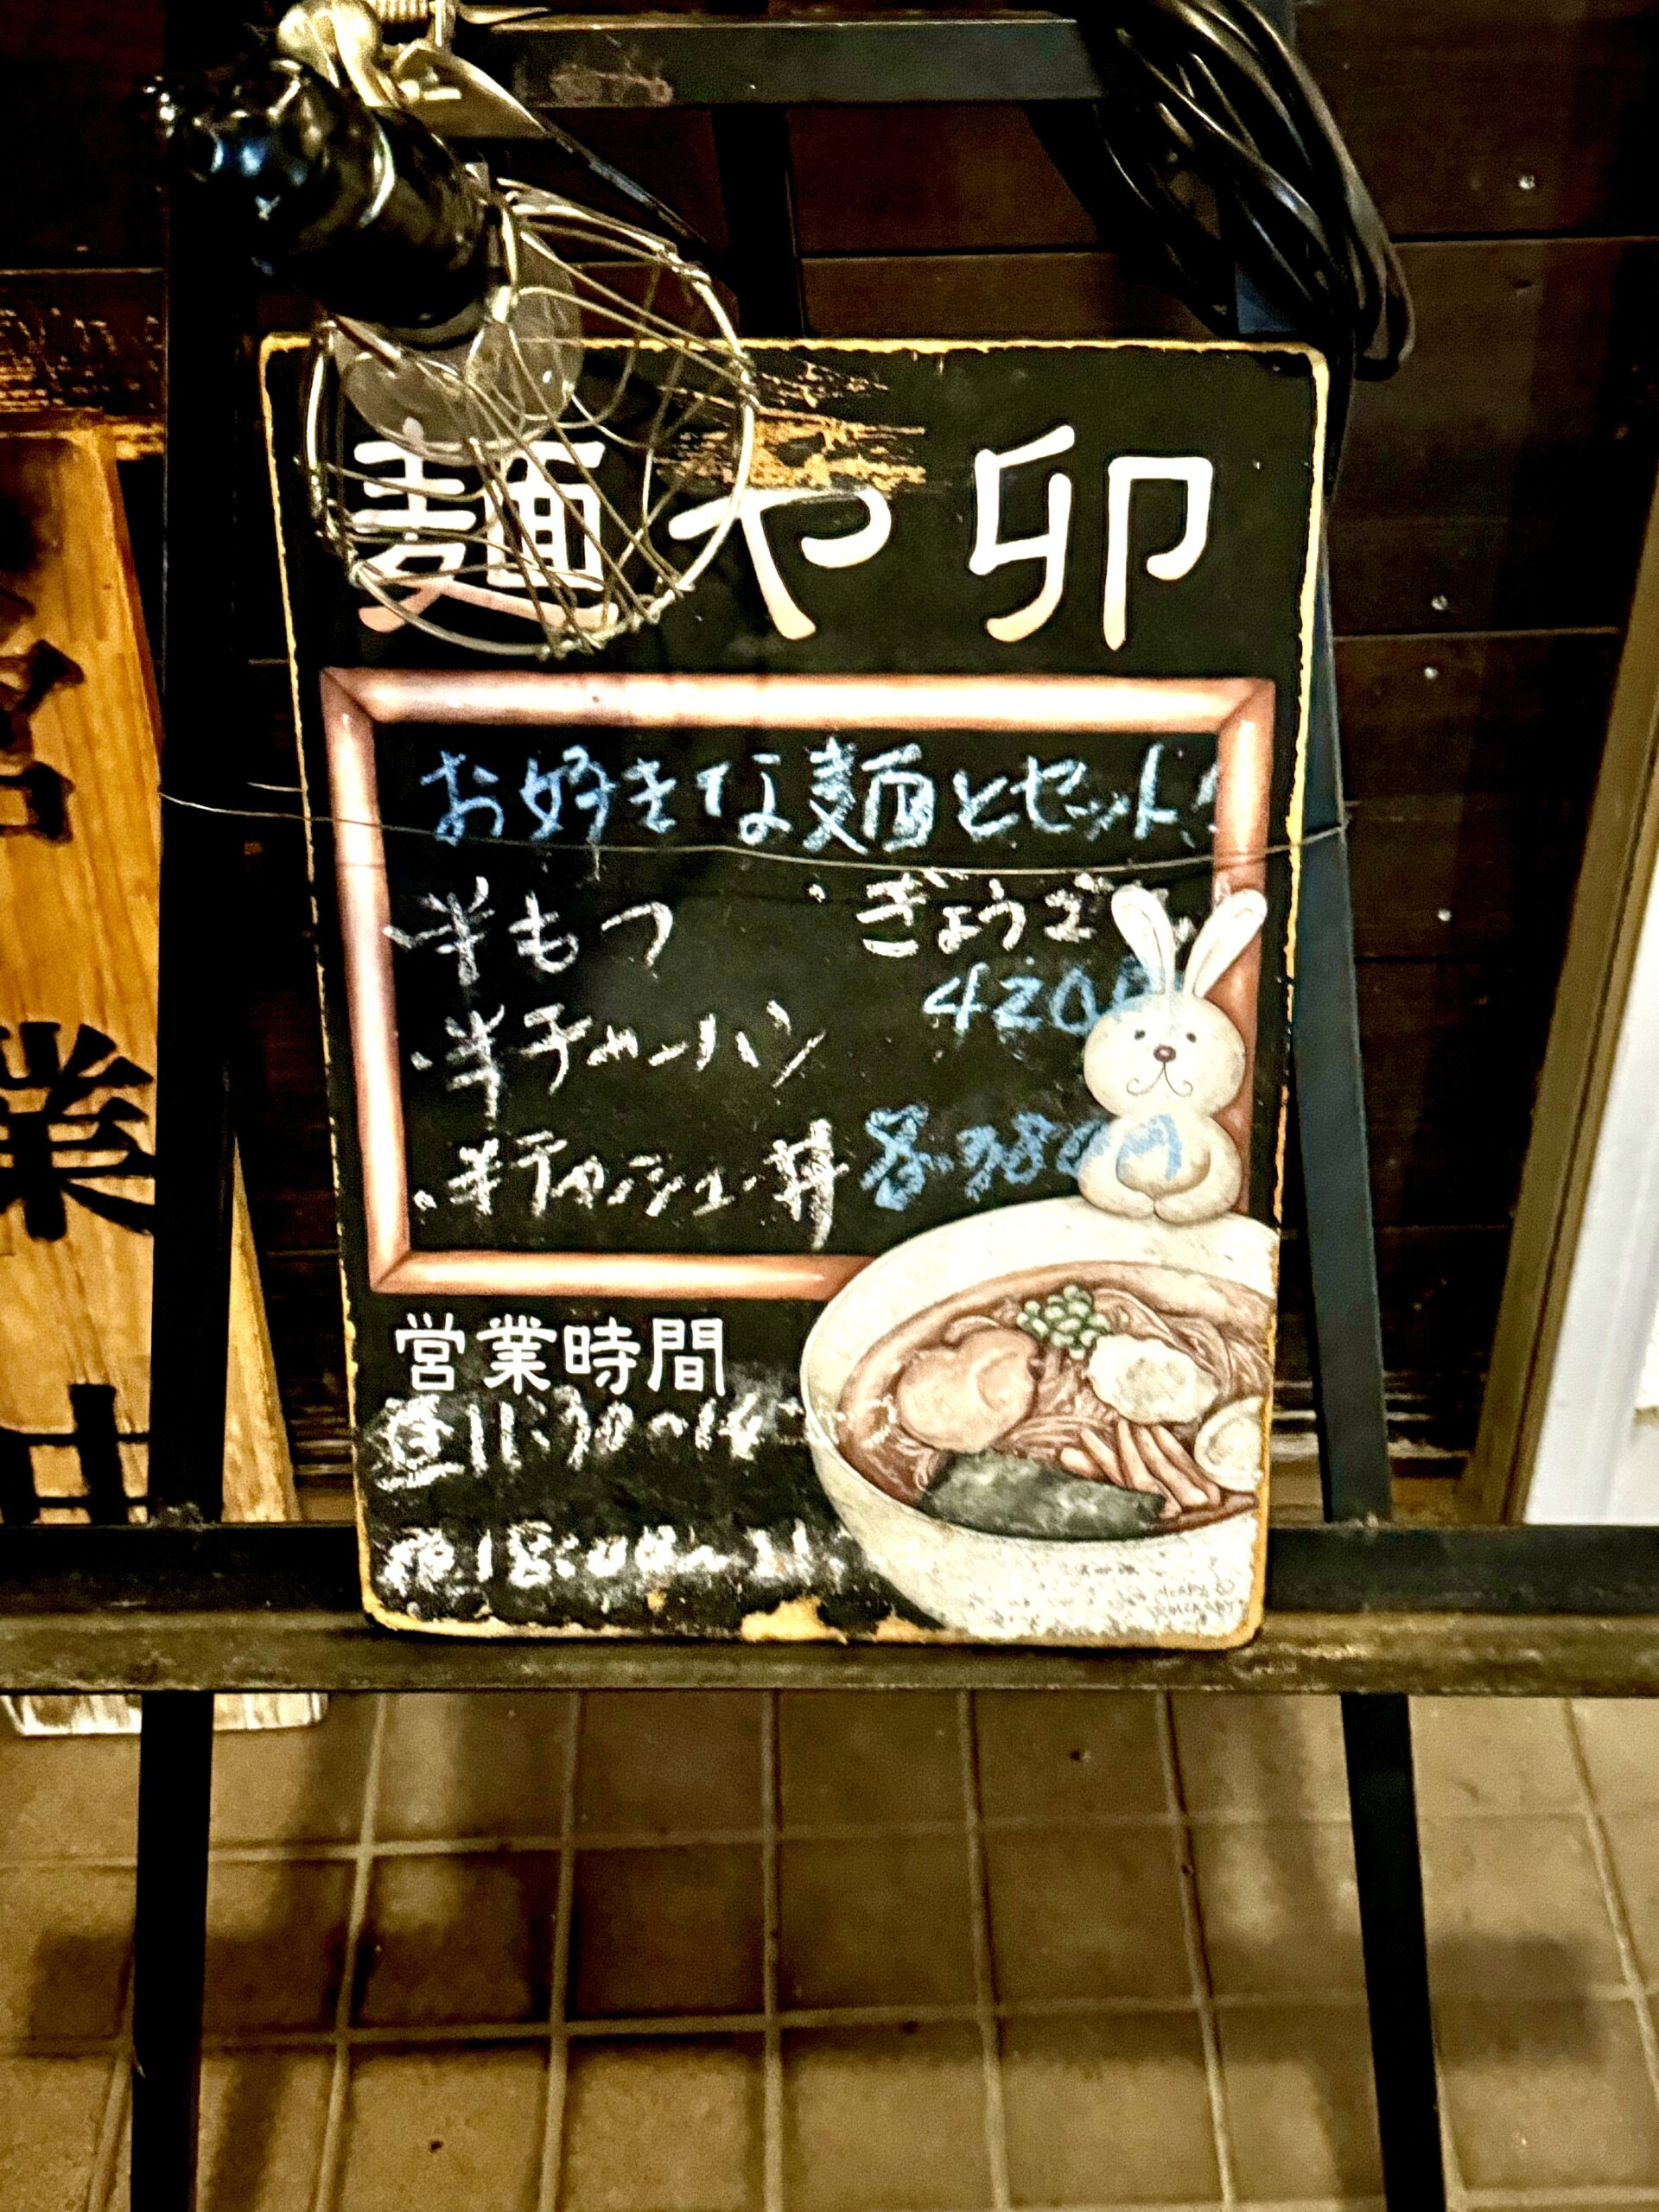 麺や卯
お好きな麺とセット!
半もつ
・ぎょうざ
420円
・半チャーハン
・半チャーシュー丼
各380円
営業時間
昼11:30~14
夜18:00~21
営
業
中